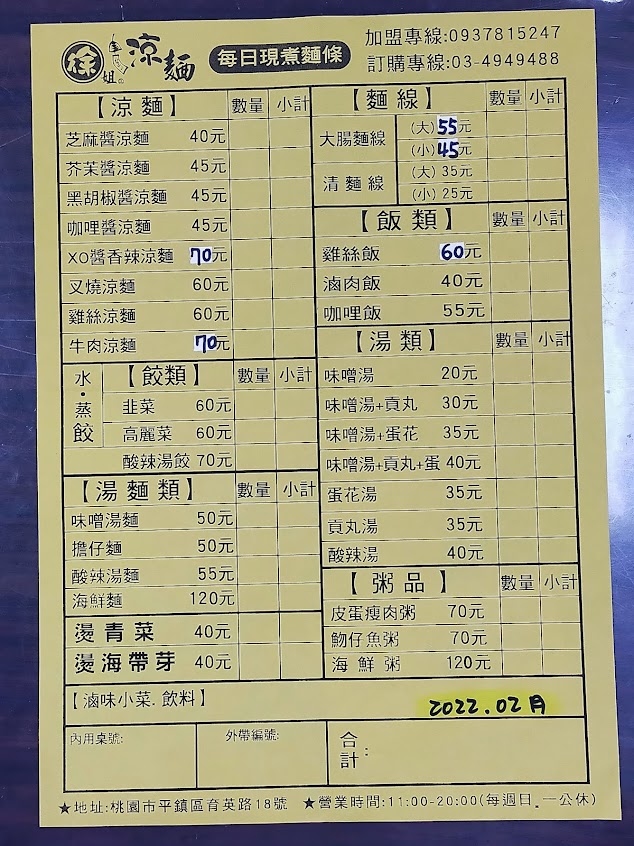 徐姐の涼麵 每日現煮麵條
加盟專線:0937815247
訂購專線:03-4949488
【涼麵】 數量 小計
芝麻醬涼麵 40元
芥茉醬涼麵 45元
黑胡椒醬涼麵 45元
咖哩醬涼麵 45元
XO醬香辣涼麵 70元
叉燒涼麵 60元
雞絲涼麵 60元
牛肉涼麵 70元
水・蒸餃 【餃類】 數量 小計
韭菜 60元
高麗菜 60元
酸辣湯餃 70元
【湯麵類】 數量 小計
味噌湯麵 50元
擔仔麵 50元
酸辣湯麵 55元
海鮮麵 120元
燙青菜 40元
燙海帶芽 40元
【麵線】 數量 小計
大腸麵線 (大)55元
(小)45元
清麵線 (大)35元
(小)25元
【飯類】 數量 小計
雞絲飯 60元
滷肉飯 40元
咖哩飯 55元
【湯類】 數量 小計
味噌湯 20元
味噌湯+貢丸 30元
味噌湯+蛋花 35元
味噌湯+貢丸+蛋 40元
蛋花湯 35元
貢丸湯 35元
酸辣湯 40元
【粥品】 數量 小計
皮蛋瘦肉粥 70元
魩仔魚粥 70元
海鮮粥 120元
【滷味小菜.飲料】 2022.02月
內用桌號: 外帶編號: 合計:
★地址:桃園市平鎮區育英路18號 ★營業時間:11:00-20:00(每週日.一公休)